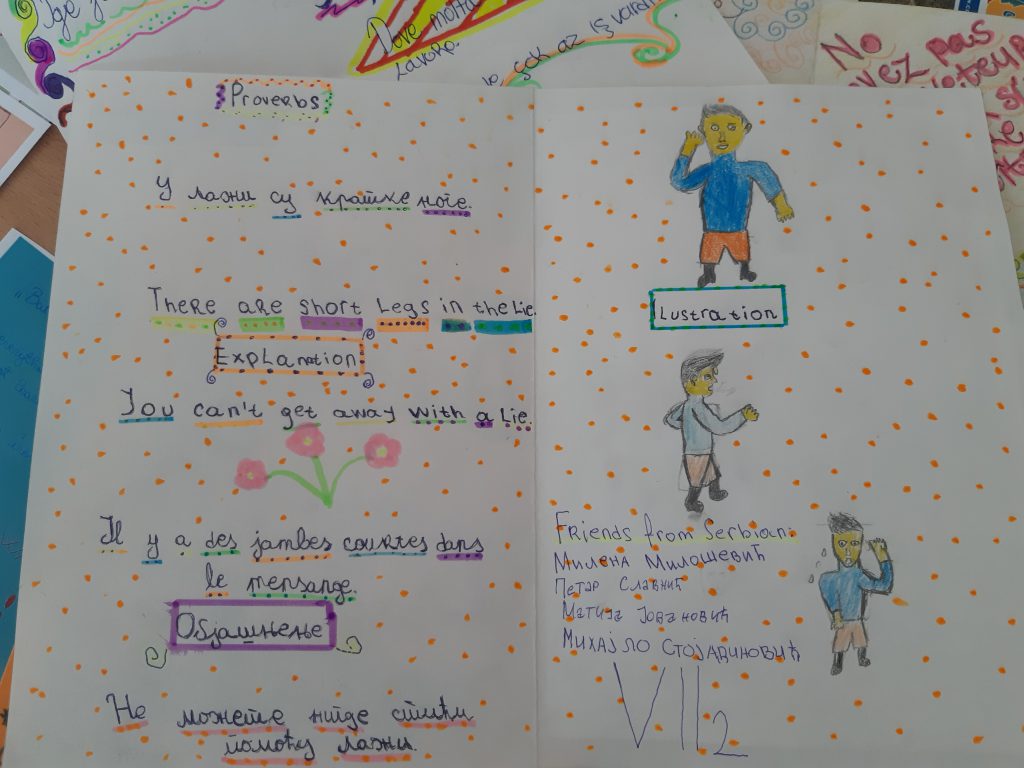 Dove molta
Lavore.
çok az iş
No
vez pas
Proverbs
У лажи су кратке ноге.
There are short legs in the lie.
Explanation
You can't get away with a lie.
Il y a des jambes courtes dans
le mensange.
Објашњење
Не можете нигде стићи
помоћу лажи.
Lustration
Friends from Serbian:
Милена Милошевић
Петар Славнић
Матија Јовановић
Михајло Стојадиновић
VII2